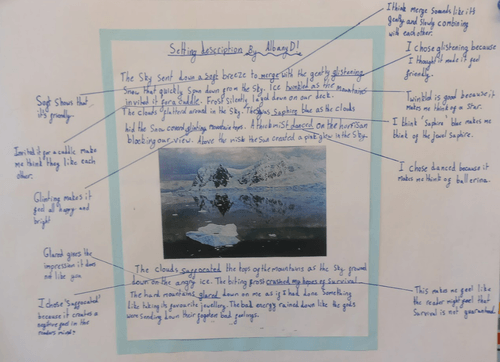 Setting description By Albany D!
The Sky sent down a soft breeze to merge with the gently glistening
snow that quickly spun down from the sky. Ice twinkled as the mountains
invited it for a cuddle. Frost silently layed down on our deck.
The clouds glittered around in the sky. The was saphire blue as the clouds
hid the snow covered glinting mountain tops. A thick mist danced on the horrison
blocking our view. Above the mist the sun created a pink glow in the sky.
The clouds suffocated the tops of the mountains as the sky
down on the angry ice. The biting frost crushed my hopes of survival
The hard mountains glared down on me as if I had done something
like taking its favourite jewellery. The bad energy rained down like the gods
were sending down their feelings.
Soft shows that
it's friendly.
Invited it for a cuddle make
me think they like each
other.
Glinting makes it
feel all happy and
bright
Glared gives the
impression it does
not like you
I chose 'suffocated'
because it creates a
negative feel in the
readers mind.
I think merge sounds like it's
gently and slowly combining
with each other.
I chose glistening because
I thought it made it feel
friendly.
Twinkled is good because it
makes me think of a star.
I think 'Saphire' blue makes me
think of the jewel saphire.
I chose danced because it
makes me think of ballerina.
This makes me feel like
the reader might feel that
Survival is not guaranteed.